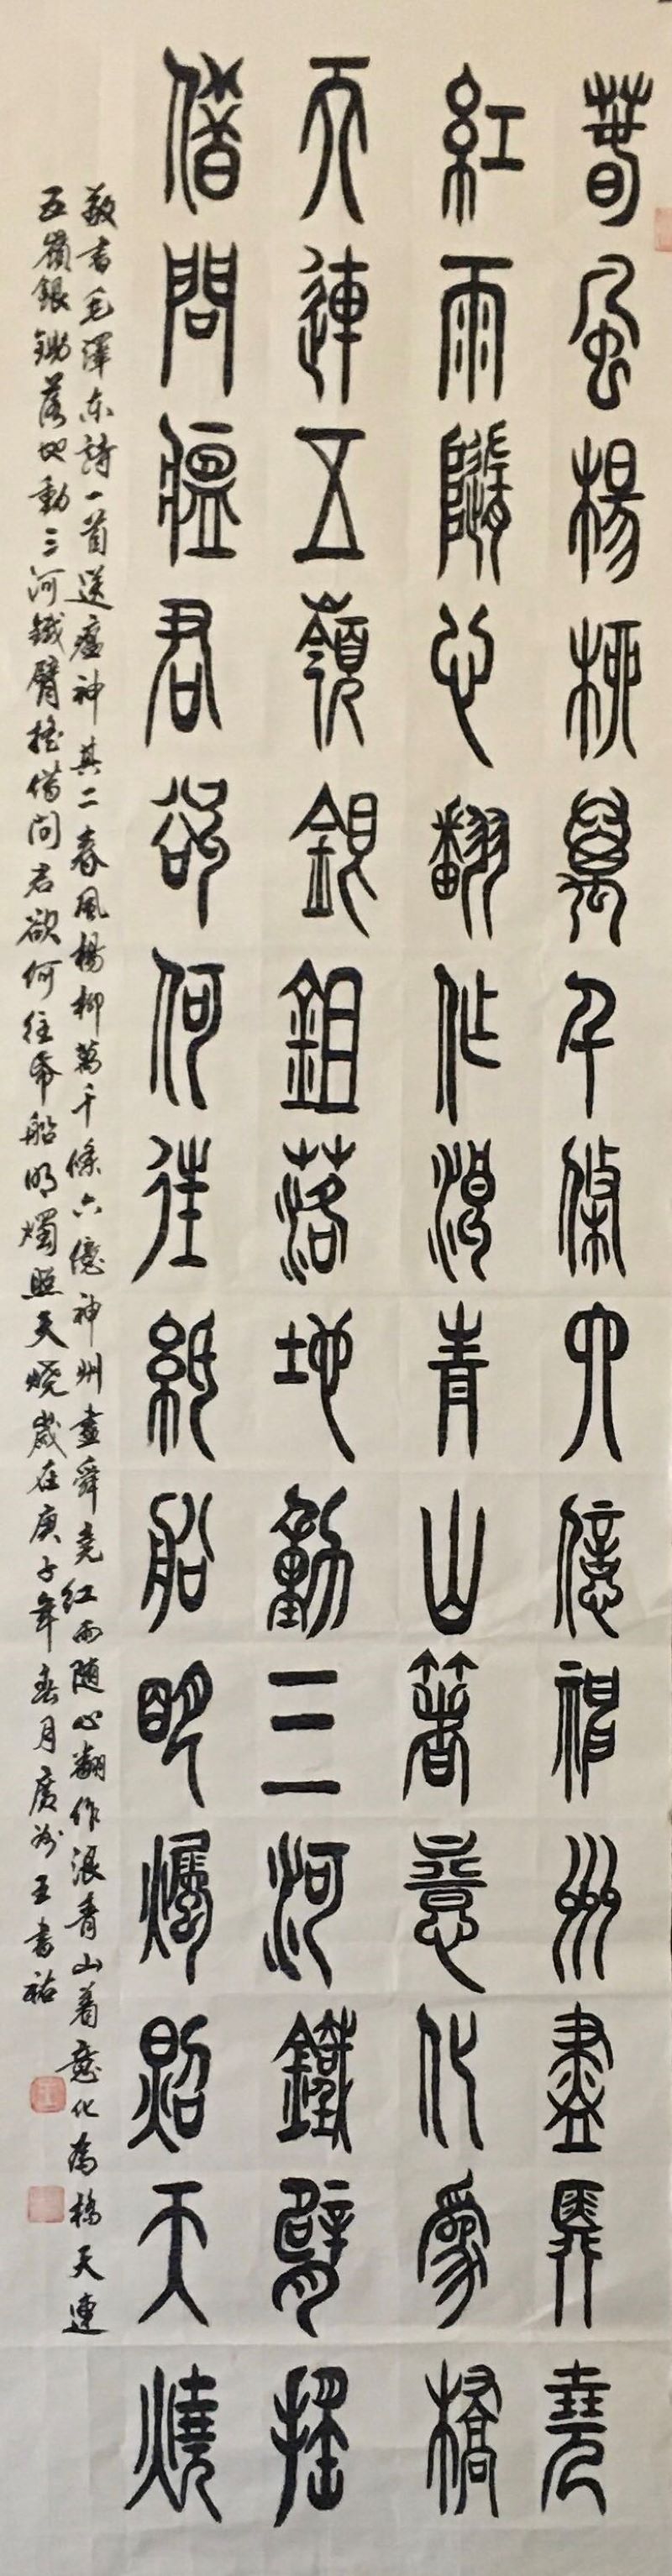 春風楊柳萬千條六億神州盡舜堯
紅雨隨心翻作浪青山著意化為橋
天連五嶺銀鉏落地動三河鐵臂搖
借問瘟君欲何往紙船明燭照天燒
敬書毛澤东詩一首送瘟神其二春風楊柳萬千條六億神州盡舜堯红雨随心翻作浪青山着意化為橋天連
五嶺銀鋤落地動三河鐵臂搖借问君欲何往帋船明燭照天燒歲在庚子年春月廣州王書祐